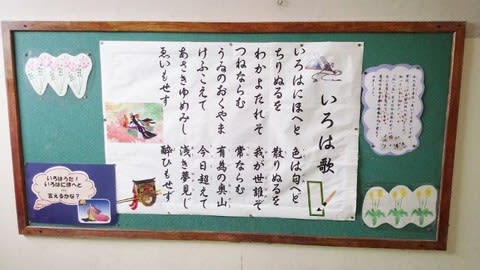 いろは歌
いろはにほへと 色は匂へど
ちりぬるを 散りぬるを
わかよたれそ 我が世誰ぞ
つねならむ 常ならむ
うゐのおくやま 有為の奥山
けふこえて 今日超えて
あさきゆめみし 浅き夢見じ
ゑいもせす 酔ひもせず
いろはうた！
いろはにほへと
…
言えるかな？